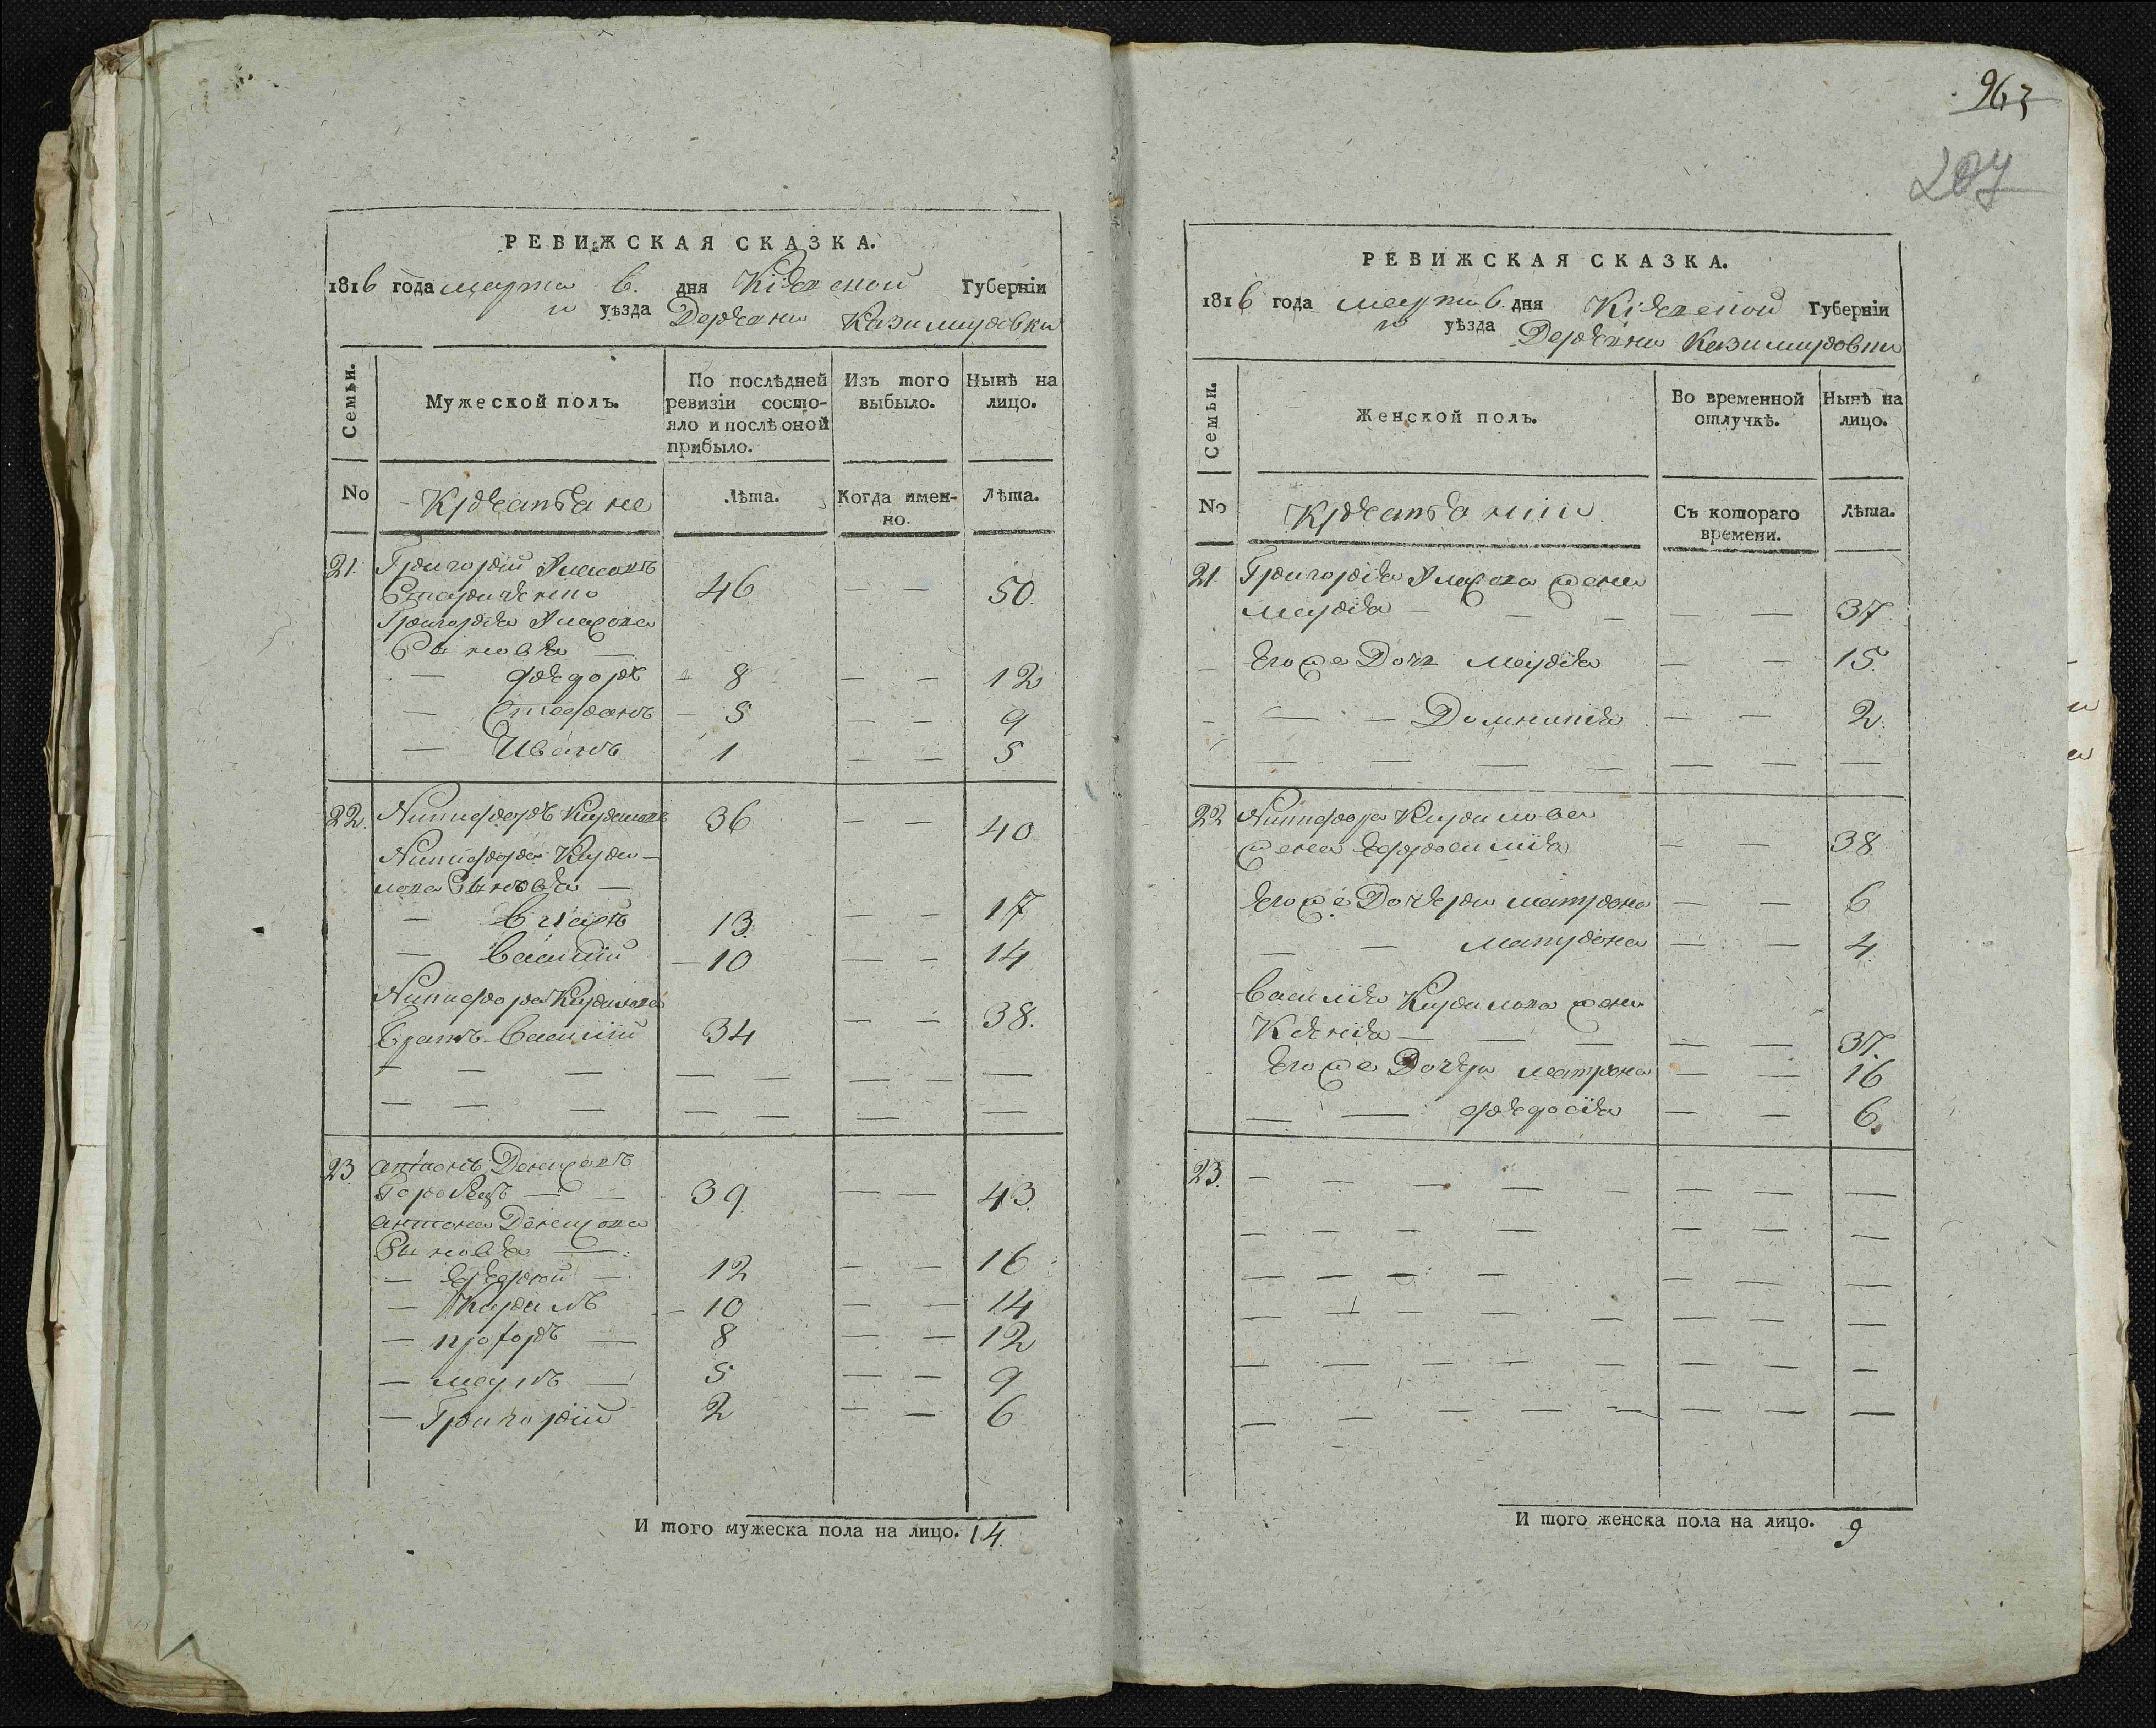 РЕВИЖСКАЯ СКАЗКА.
1816 года марта 6. дня Кіевской Губерніи
го уѣзда Деревни Казимировки
Семьи.
Мужеской полъ.
По послѣдней ревизіи состо-
яло и послѣ оной
прибыло.
Изъ того
выбыло.
Нынѣ на
лицо.
No
Крестьяне
Лѣта.
Когда имен-
но.
Лѣта.
21. Григорій
46 — — 50.
Григорія
Сыновья —
— Федоръ 8 — — 12
— Стефанъ 5 — — 9
— Иванъ 1 — — 5
22. Никифоръ Кириловъ 36 — — 40
Никифора Кири-
лова Сыновья —
— Власъ 13 — — 17
— Василій 10 — — 14
Никифора Кирилова
Братъ Василій 34 — — 38.
23. Антонъ
39 — — 43.
Антона
Сыновья —
— 12 — — 16
— Кирилъ 10 — — 14
— 8 — — 12
— 5 — — 9
— Григорій 2 — — 6
И того мужеска пола на лицо. 14
963
207
РЕВИЖСКАЯ СКАЗКА.
1816 года марта 6. дня Кіевской Губерніи
го уѣзда Деревни Казимировки
Семьи.
Женской полъ.
Во временной
отлучкѣ.
Нынѣ на
лицо.
No
Крестьянки
Съ котораго
времени.
Лѣта.
21 Григорія жена
Марія — — — 37
Его же Дочь Марія — — 15
— — Домникія — — 2
22 Никифора Кирилова
жена Ефросимія — — 38
Его же Дочери Матрона — — 6
— Матрона — — 4
Василія Кирилова жена
Ксенія — — — 37.
Его же Дочери Матрона — — 16
— — Федосія — — 6.
23.
И того женска пола на лицо. 9